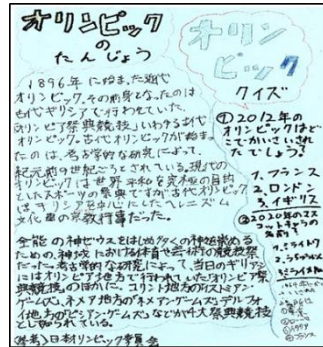 オリンピック
の
たんじょう
1896年に始まった近代
オリンピック。その前身となったのは
古代ギリシアで行われていた
「オリンピア祭典競技」いわゆる古代
オリンピック。古代オリンピックが始まっ
たのは、考古学的な研究によって、
紀元前9世紀ごろとされている。現代の
オリンピックは世界平和を究極の目的
としたスポーツの祭典ですが古代オリンピック
はギリシアを中心にしたヘレニズム
文化圏の宗教行事だった。
全能の神ゼウスをはじめ多くの神々を崇める
ための、神域における体育や芸術の競技祭
だった。考古学的な研究によって、当日のギリシアン
にはオリンピア地方で行われていた「オリンピア祭
典競技」のほかに、コリント地方のイストミアン・
ゲームズ、ネメア地方のネメアン・ゲームズ、デルフォ
イ地方のピシアン・ゲームズなどが4大祭典競技
として知られている。
(参考)日本オリンピック委員会
オリン
ピック
クイズ
①2012年の
オリンピックはど
こでかいさいされ
たでしょう?
1.フランス
2.ロンドン
3.イギリス
②2020年のマス
コットキャラの
名前は?
1.ミライトワ
3.ミライ